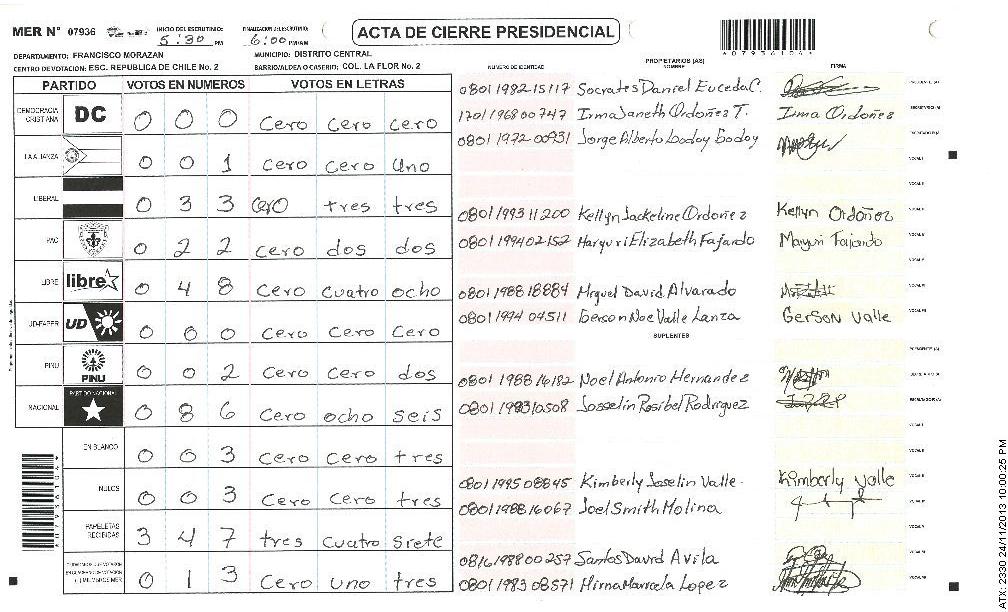 MER N° 07936
INICIO DEL ESCRUTINIO: 5:30 PM
FINALIZACION DEL ESCRUTINIO: 6:00 PM/AM
ACTA DE CIERRE PRESIDENCIAL
07936104
DEPARTAMENTO: FRANCISCO MORAZAN
MUNICIPIO: DISTRITO CENTRAL
CENTRO DE VOTACION: ESC. REPUBLICA DE CHILE No. 2
BARRIO/ALDEA O CASERIO: COL. LA FLOR No. 2
PARTIDO VOTOS EN NUMEROS VOTOS EN LETRAS
DEMOCRACIA CRISTIANA DC 0 0 0 Cero Cero Cero
LA ALIANZA 0 0 1 Cero Cero Uno
LIBERAL 0 3 3 Cero tres tres
PAC 0 2 2 Cero dos dos
LIBRE libre 0 4 8 Cero Cuatro ocho
UD-FAPER UD 0 0 0 Cero Cero Cero
PINU PINU 0 0 2 Cero Cero dos
NACIONAL PARTIDO NACIONAL 0 8 6 Cero ocho seis
EN BLANCO 0 0 3 Cero Cero tres
NULOS 0 0 3 Cero Cero tres
PAPELETAS RECIBIDAS 3 4 7 tres Cuatro Siete
0 1 3 Cero uno tres
NUMERO DE IDENTIDAD
PROPIETARIOS (AS)
NOMBRE
FIRMA
0801 1982-15117 Socrates Daniel Euceda C.
1701 1968 00747 Irma Janeth Ordoñez T. Irma Ordoñez
0801 1972-00931 Jorge Alberto Godoy Godoy
0801 1993 11200 Kellyn Jackeline Ordoñez Kellyn Ordoñez
0801 1994 02152 Maryuri Elizabeth Fajardo Mayuri Fajardo
0801 1988 18884 Miguel David Alvarado
0801 1994 04511 Gerson Noe Valle Lanza GerSon Valle
SUPLENTES
0801 1988 16182 Noel Antonio Hernandez
0801 1983 10508 Josselin Rosibel Rodriguez
0801 1995 08845 Kimberly Joselin Valle Kimberly Valle
0801 1988 16067 Joel Smith Molina
0816 1988 00257 Santos David Avila
0801 1983 08571 Mirna Marcela Lopez
ATX: 2330 24/11/2013 10:00:25 PM